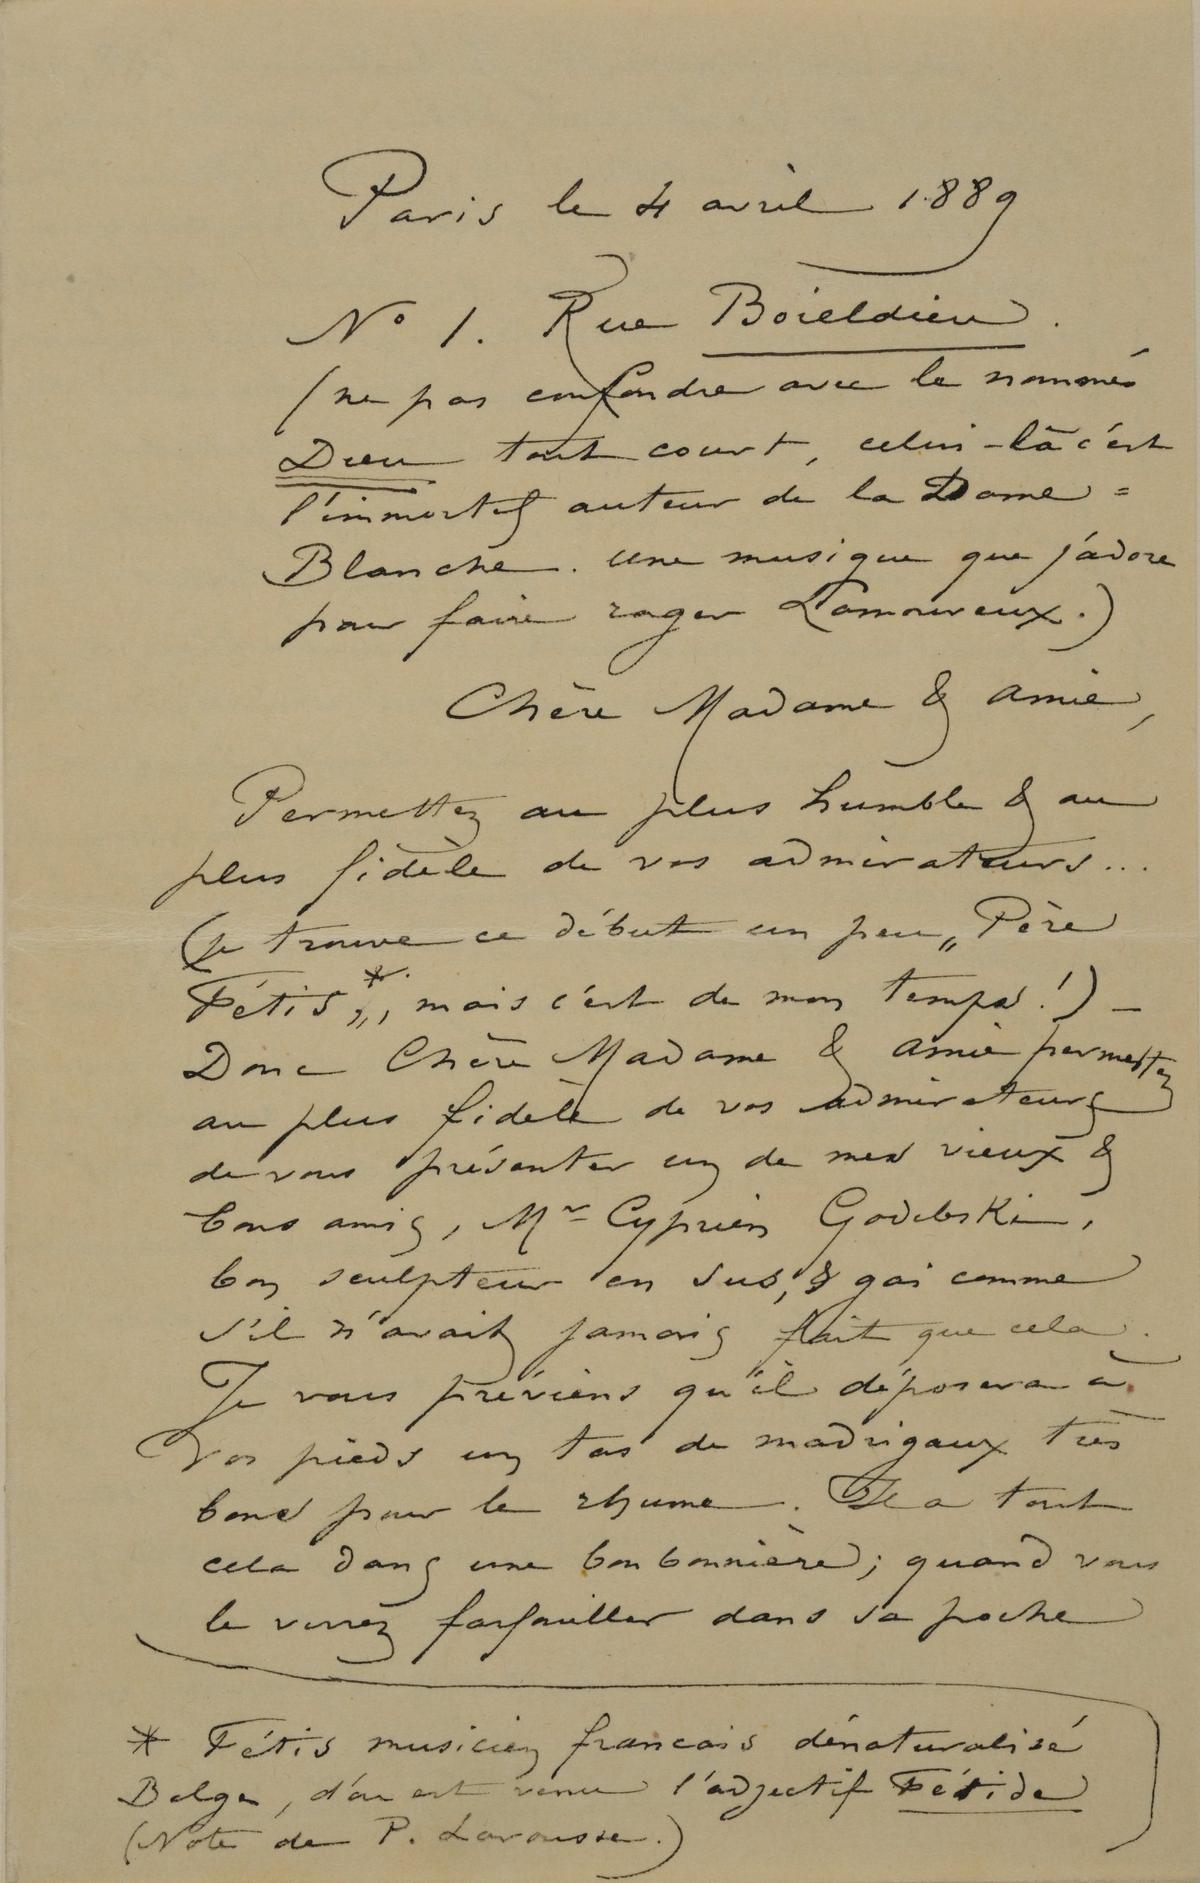 Paris le 4 avril 1889
N° 1. Rue Boieldieu.
(ne pas confondre avec le nommé
Dieu tout court, celui-là c'est
l'immortel auteur de la Dame =
Blanche. une musique que j'adore
pour faire rager Lamoureux.)
Chère Madame & amie,
Permettez au plus humble & au
plus fidèle de vos admirateurs...
(je trouve ce début un peu „Père
Fétis*„, mais c'est de mon temps!) —
Donc Chère Madame & amie permettez
au plus fidèle de vos admirateurs
de vous présenter un de mes vieux &
bons amis, Mr Cyprien Godebski,
bon sculpteur en sus, & gai comme
s'il n'avait jamais fait que cela.
Je vous préviens qu'il déposera à
vos pieds un tas de madrigaux très
bons pour le rhume. Il a tout
cela dans une bonbonnière; quand vous
le verrez farfouiller dans sa poche
* Fétis musicien francais dénaturalisé
Belge, d'où est venu l'adjectif Fétide
(Note de P. Larousse.)